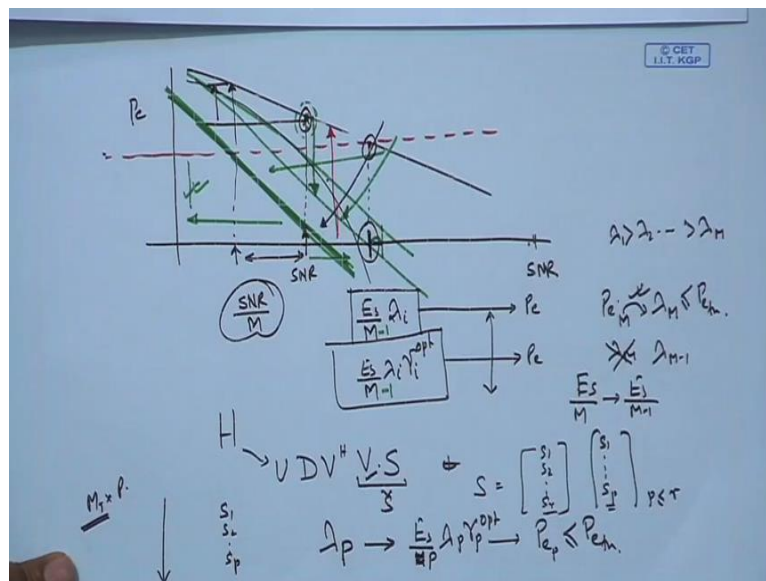 © CET
I.I.T. KGP
Pe
SNR
SNR
λ₁ > λ₂ ··· > λ_M
SNR/M
Es/M-1 λi → Pe
Es/M-1 λi γi^opt → Pe
λ_M ≤ Pe_th.
λ_M-1
Es/M → Es/M-1
H
U D V^H V.S
S = [s₁ s₂ ⋮ s_r] [s₁ ⋮ s_p] p ≤ r
M_T × P.
s₁
s₂
⋮
s_p
λp → Es/p λp γp^opt → Pe_p ≤ Pe_th.